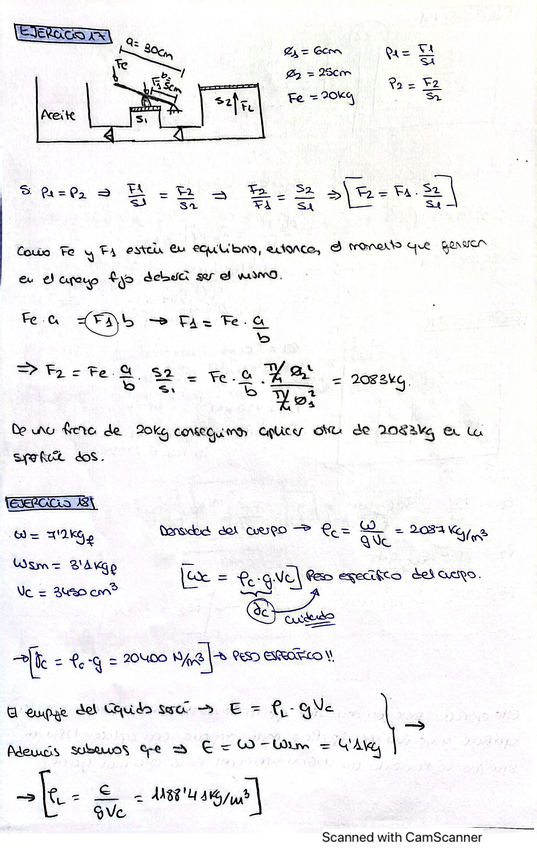 EJERCICIO 17
a = 30cm
Fe
b = 5cm
F1
S1
S2
F2
Aceite
ø1 = 6cm
ø2 = 25cm
Fe = 20kg
P1 = F1/S1
P2 = F2/S2
Si P1 = P2 ⇒ F1/S1 = F2/S2 ⇒ F2/F1 = S2/S1 ⇒ [F2 = F1 · S2/S1]
Como Fe y F1 están en equilibrio, entonces, el momento que generen
en el apoyo fijo deberá ser el mismo.
Fe · a = F1 b → F1 = Fe · a/b
⇒ F2 = Fe · a/b · S2/S1 = Fe · a/b · (π/4 ø2²)/(π/4 ø1²) = 2083kg.
De una fuerza de 20kg conseguimos aplicar otra de 2083kg en la
spficie dos.
EJERCICIO 18
ω = 7'2kgf
ωsm = 3'1kgf
Vc = 3450cm³
Densidad del cuerpo → ρc = ω/gVc = 2087 kg/m³
[ωc = ρc · g · Vc] Peso específico del cuerpo.
γc
cuidado
→ [γc = ρc · g = 20400 N/m³] → PESO ESPECÍFICO!!
El empuje del líquido será → E = ρL · gVc
Además sabemos que ⇒ E = ω - ωsm = 4'1kg } →
→ [ρL = E/gVc = 1188'41kg/m³]
Scanned with CamScanner